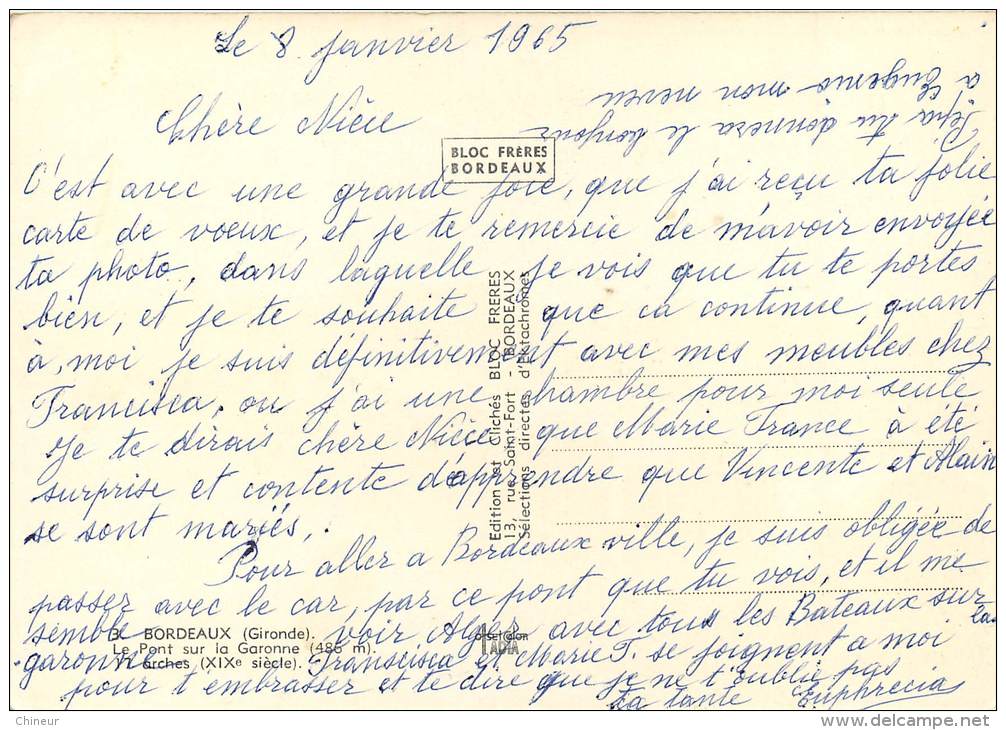 Le 8 janvier 1965
Pepa tu donnera le bonjour
à Eugenio mon neveu
Chère Nièce
BLOC FRÈRES
BORDEAUX
C'est avec une grande joie, que j'ai reçu ta jolie
carte de voeux, et je te remercie de m'avoir envoyée
ta photo, dans laquelle je vois que tu te portes
bien, et je te souhaite que ca continue, quant
à, moi je suis définitivement avec mes meubles chez
Francisca, ou j'ai une chambre pour moi seule
Je te dirais chère Nièce que Marie France à été
surprise et contente d'apprendre que Vincente et Alain
se sont mariés.
Pour aller a Bordeaux ville, je suis obligée de
passer avec le car, par ce pont que tu vois, et il me
semble voir Alger avec tous les Bateaux sur la
garonne. Franscisca et Marie F. se joignent a moi
pour t'embrasser et te dire que je ne t'oublie pas
ta tante Euphrecia
Edition et Clichés BLOC FRERES
13, rue Saint-Fort - BORDEAUX
Sélections directes d'Ektachromes
3. BORDEAUX (Gironde).
Le Pont sur la Garonne (486 m).
arches (XIXe siècle).
Chineur
http://www.delcampe.net